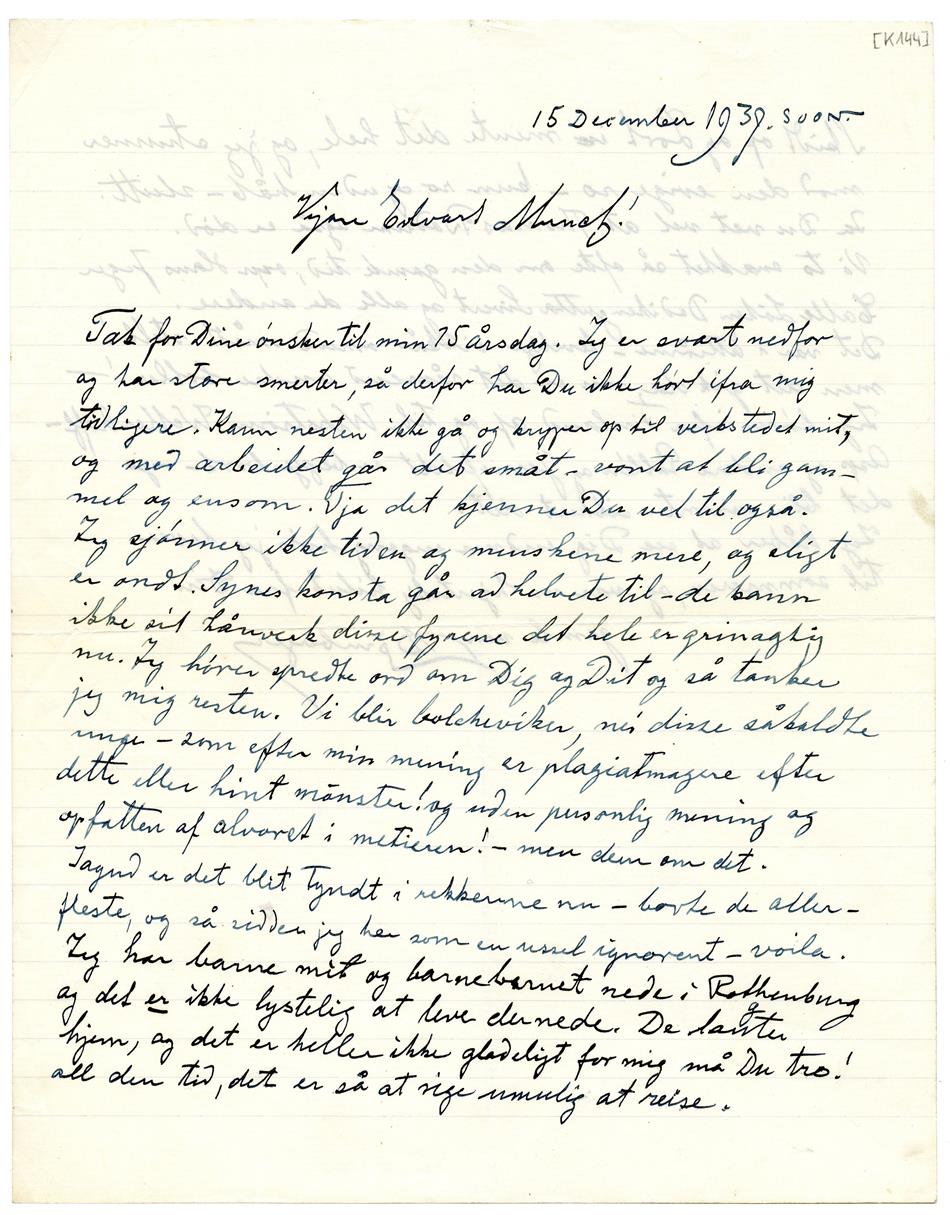 [K144]
15 December 1939. Soon.
Kjære Edvart Munch!
Tak for Dine ønsker til min 75 årsdag. Jeg er svært nedfor
og har store smerter, så derfor har Du ikke hørt ifra mig
tidligere. Kann nesten ikke gå og kryper op til verkstedet mit,
og med arbeidet går det småt – vont at bli gam–
mel og ensom. Tja det kjenner Du vel til også.
Jeg sjønner ikke tiden og menskene mere, og sligt
er ondt. Synes konsta går ad helvete til – de kann
ikke sit hånverk disse fyrene det hele er grinagtig
nu. Jeg hører spredte ord om Dig og Dit og så tænker
jeg mig resten. Vi blir bolcheviker, nei disse såkaldte
unge – som efter min mening er plagiatmagere efter
dette eller hint mønster! og uden personlig mening og
opfatten af alvoret i metieren! – men dem om det.
Jagud er det blit Tyndt i rekkerne nu – borte de aller–
fleste, og så sidder jeg her som en ussel ignorent – voila.
Jeg har barne mit og barnebarnet nede i Rothenburg
og det er ikke lystelig at leve dernede. De længter
hjem, og det er heller ikke gladeligt for mig må Du tro!
all den tid, det er så at sige umulig at reise.